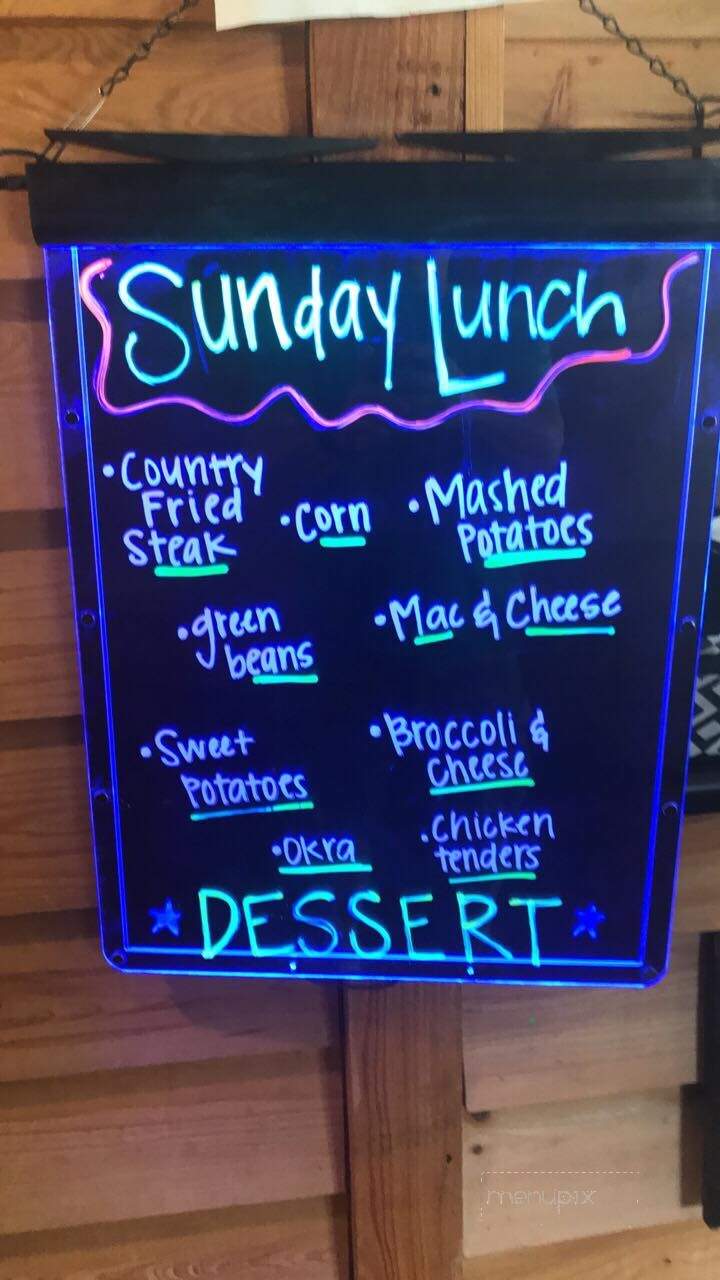 Sunday Lunch
• Country
Fried
Steak
• Corn
• Mashed
Potatoes
• green
beans
• Mac & Cheese
• Sweet
Potatoes
• Broccoli &
Cheese
• Okra
• chicken
tenders
★ DESSERT ★
menupix